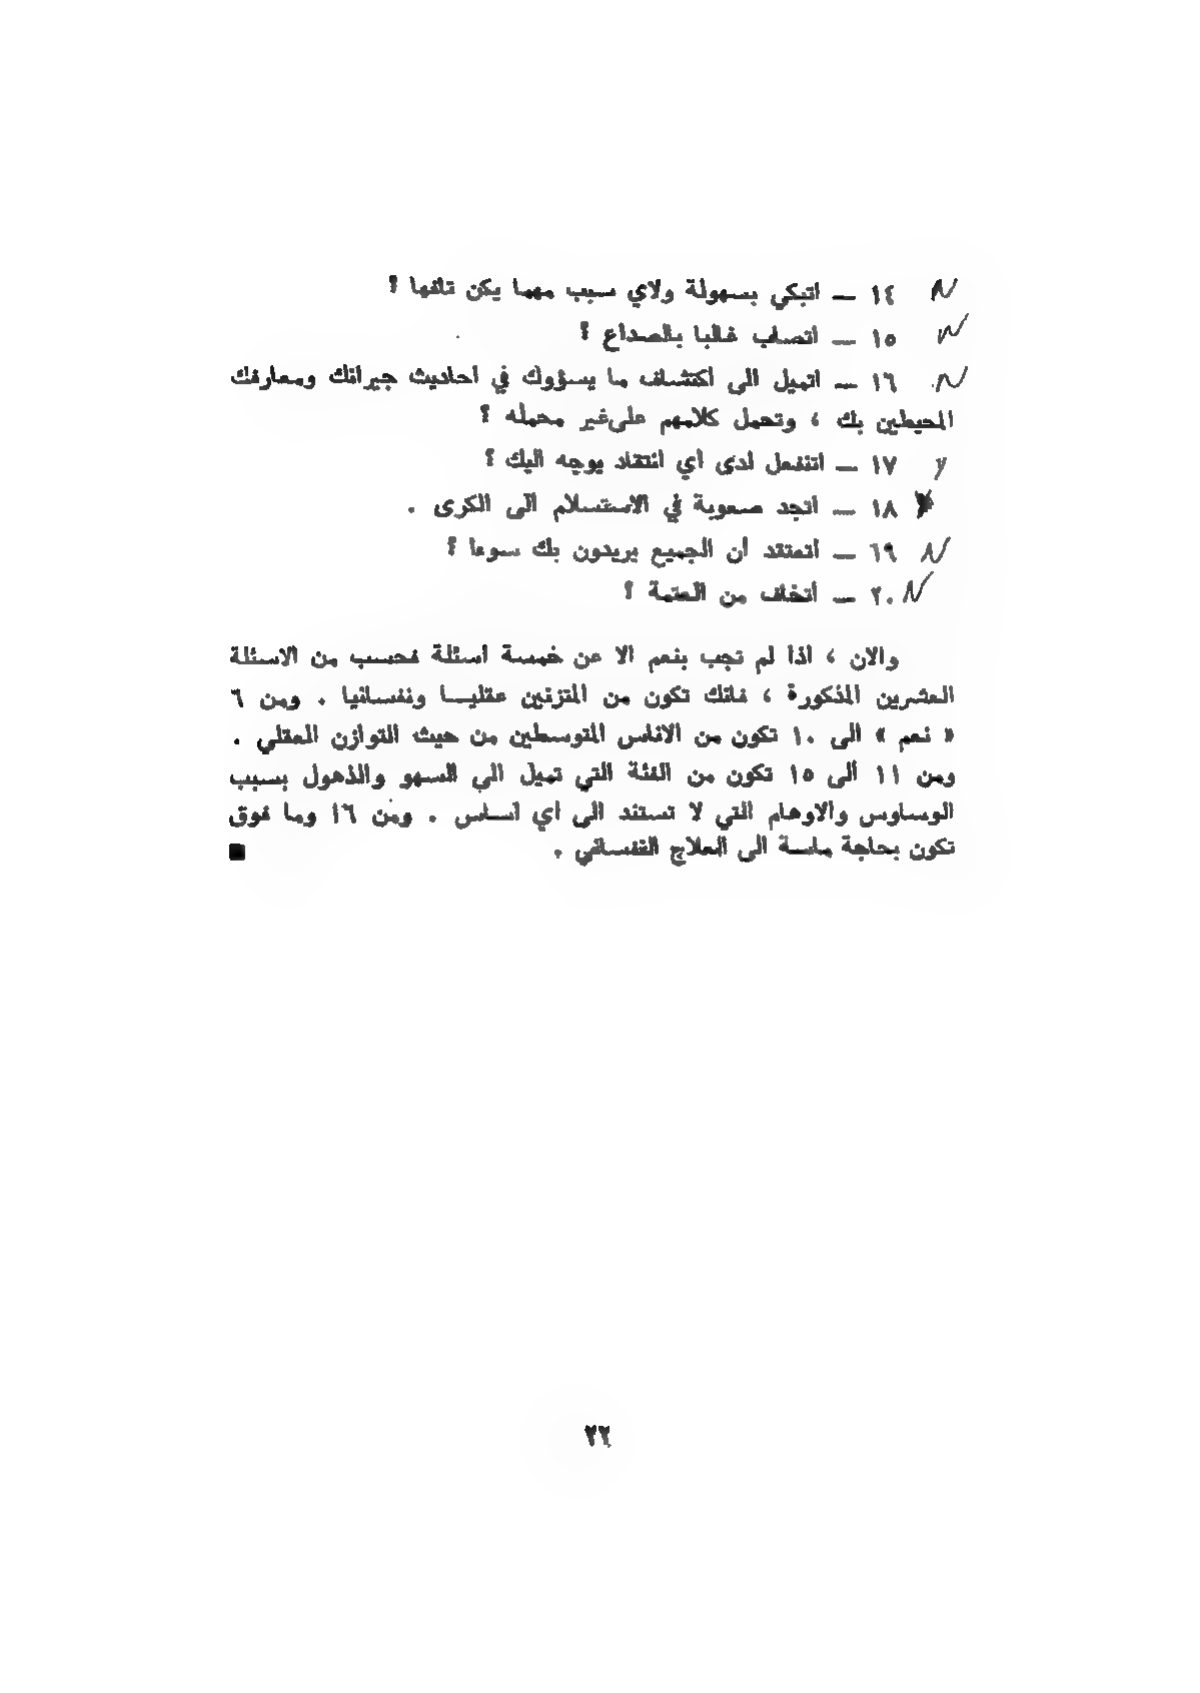 N ١٤ — اتبكي بسهولة ولاي سبب مهما يكن تافها ؟
N ١٥ — اتصاب غالبا بالصداع ؟
N ١٦ — اتميل الى اكتشاف ما يسؤوك في احاديث جيرانك ومعارفك
المحيطين بك ، وتحمل كلامهم على غير محمله ؟
y ١٧ — اتنفعل لدى اي انتقاد يوجه اليك ؟
١٨ — اتجد صعوبة في الاستسلام الى الكرى .
N ١٩ — اتعتقد ان الجميع يريدون بك سوءا ؟
N ٢٠ — اتخاف من العتمة ؟
والان ، اذا لم تجب بنعم الا عن خمسة اسئلة فحسب من الاسئلة
العشرين المذكورة ، فانك تكون من المتزنين عقليـــا ونفسانيا . ومن ٦
« نعم » الى ١٠ تكون من الاناس المتوسطين من حيث التوازن العقلي .
ومن ١١ الى ١٥ تكون من الفئة التي تميل الى السهو والذهول بسبب
الوساوس والاوهام التي لا تستند الى اي اساس . ومن ١٦ وما فوق
تكون بحاجة ماسة الى العلاج النفساني .
٢٢